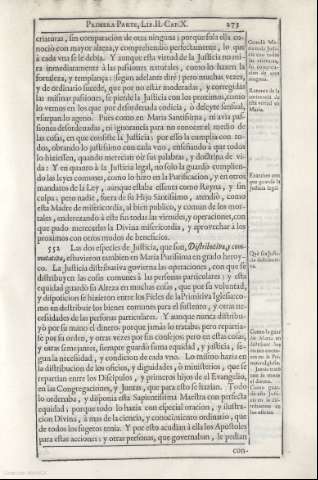 PRIMERA PARTE, LIB. II. CAP. X. 273
criaturas, sin comparacion de otra ninguna; porque sola ella co-
noció con mayor alteza, y comprehendió perfectamente, lo que
à cada vna se le debia. Y aunque esta virtud de la Justicia no mi-
ra inmediatamente à las passiones naturales, como lo hazen la
fortaleza, y templança; segun adelante diré; pero muchas vezes,
y de ordinario sucede, que por no estàr moderadas, y corregidas
las mismas passiones, se pierde la Justicia con los proximos; como
lo vemos en los que por desordenada codicia, ò deleyte sensual,
vsurpan lo ageno. Pues como en Maria Santissima, ni avia pas-
siones desordenadas, ni ignorancia para no conocer el medio de
las cosas, en que consiste la Justicia; por esso la cumplia con to-
dos, obrando lo justissimo con cada vno, enseñando à que todos
lo hiziessen, quando merecian oìr sus palabras, y doctrina de vi-
da: Y en quanto à la Justicia legal, no solo la guardò cumplien-
do las leyes comunes, como lo hizo en la Purificacion, y en otros
mandatos de la Ley, aunque estaba essenta como Reyna, y sin
culpa; pero nadie, fuera de su Hijo Santissimo, atendió, como
esta Madre de misericordia, al bien publico, y comun de los mor-
tales, endereçando à este fin todas las virtudes, y operaciones, con
que pudo merecerles la Divina misericordia, y aprovechar à los
proximos con otros modos de beneficios.
552 Las dos especies de Justicia, que son, Distributiva, y con-
mutativa, estuvieron tambien en Maria Purissima en grado heroy-
co. La Justicia distributiva govierna las operaciones, con que se
distribuyen las cosas comunes à las personas particulares: y esta
equidad guardò su Alteza en muchas cosas, que por su voluntad,
y disposicion se hizieron entre los Fieles de la Primitiva Iglesia; co-
mo en distribuir los bienes comunes para el sustento, y otras ne-
cessidades de las personas particulares. Y aunque nunca distribu-
yò por su mano el dinero, porque jamàs lo trataba; pero repartia-
se por su orden, y otras vezes por su consejo; pero en estas cosas,
y otras semejantes, siempre guardò suma equidad, y justicia, se-
gun la necessidad, y condicion de cada vno. Lo mismo hazia en
la distribucion de los oficios, y dignidades, ò ministerios, que se
repartian entre los Discipulos, y primeros hijos de el Evangelio,
en las Congregaciones, y Juntas, que para esto se hazian. Todo
lo ordenaba, y disponia esta Sapientissima Maestra con perfecta
equidad; porque todo lo hazia con especial oracion, y ilustra-
cion Divina, à mas de la ciencia, y conocimiento ordinario, que
de todos los sugetos tenia. Y por esto acudian à ella los Apostoles
para estas acciones; y otras personas, que governaban, le pedian
con-